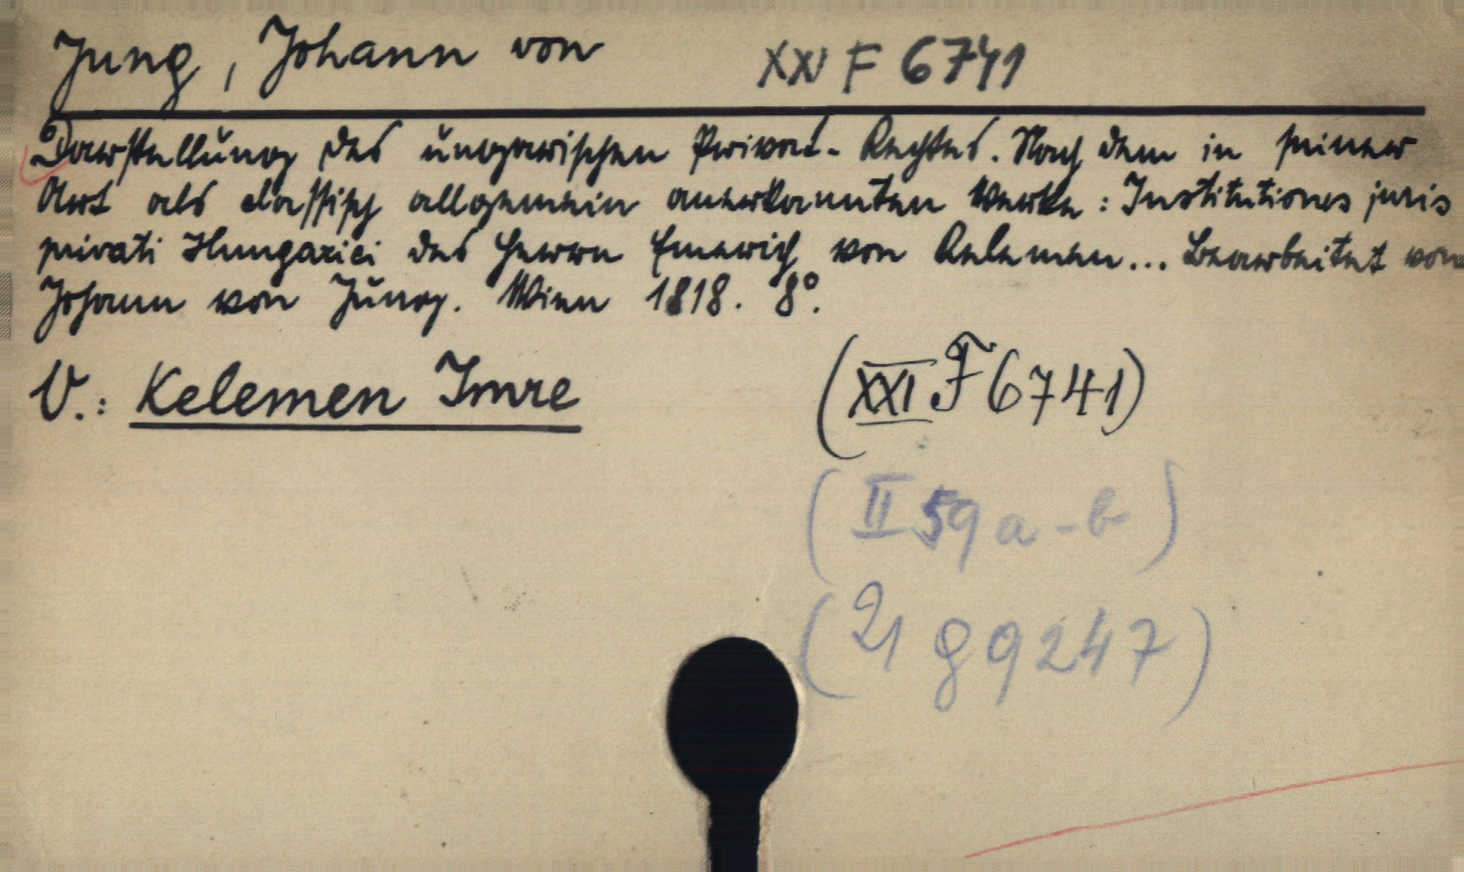 Jung, Johann von XXI F 6741
Darstellung des ungarischen Privat-Rechtes. Nach dem in seiner
Art als classisch allgemein anerkannten Werke: Institutiones juris
privati Hungarici des Herrn Emerich von Kelemen... Bearbeitet von
Johann von Jung. Wien 1818. 8°.
V.: Kelemen Imre (XXI F 6741)
(II 59 a-b)
(21 g 9247)